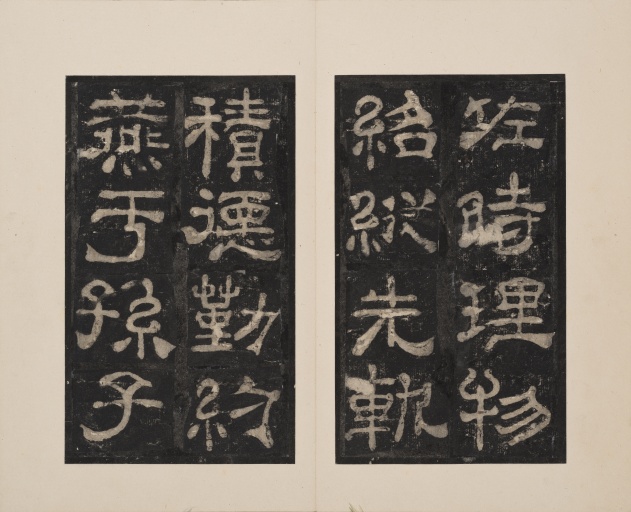 佐時理物
紹縱先軌
積德勤約
燕于孫子